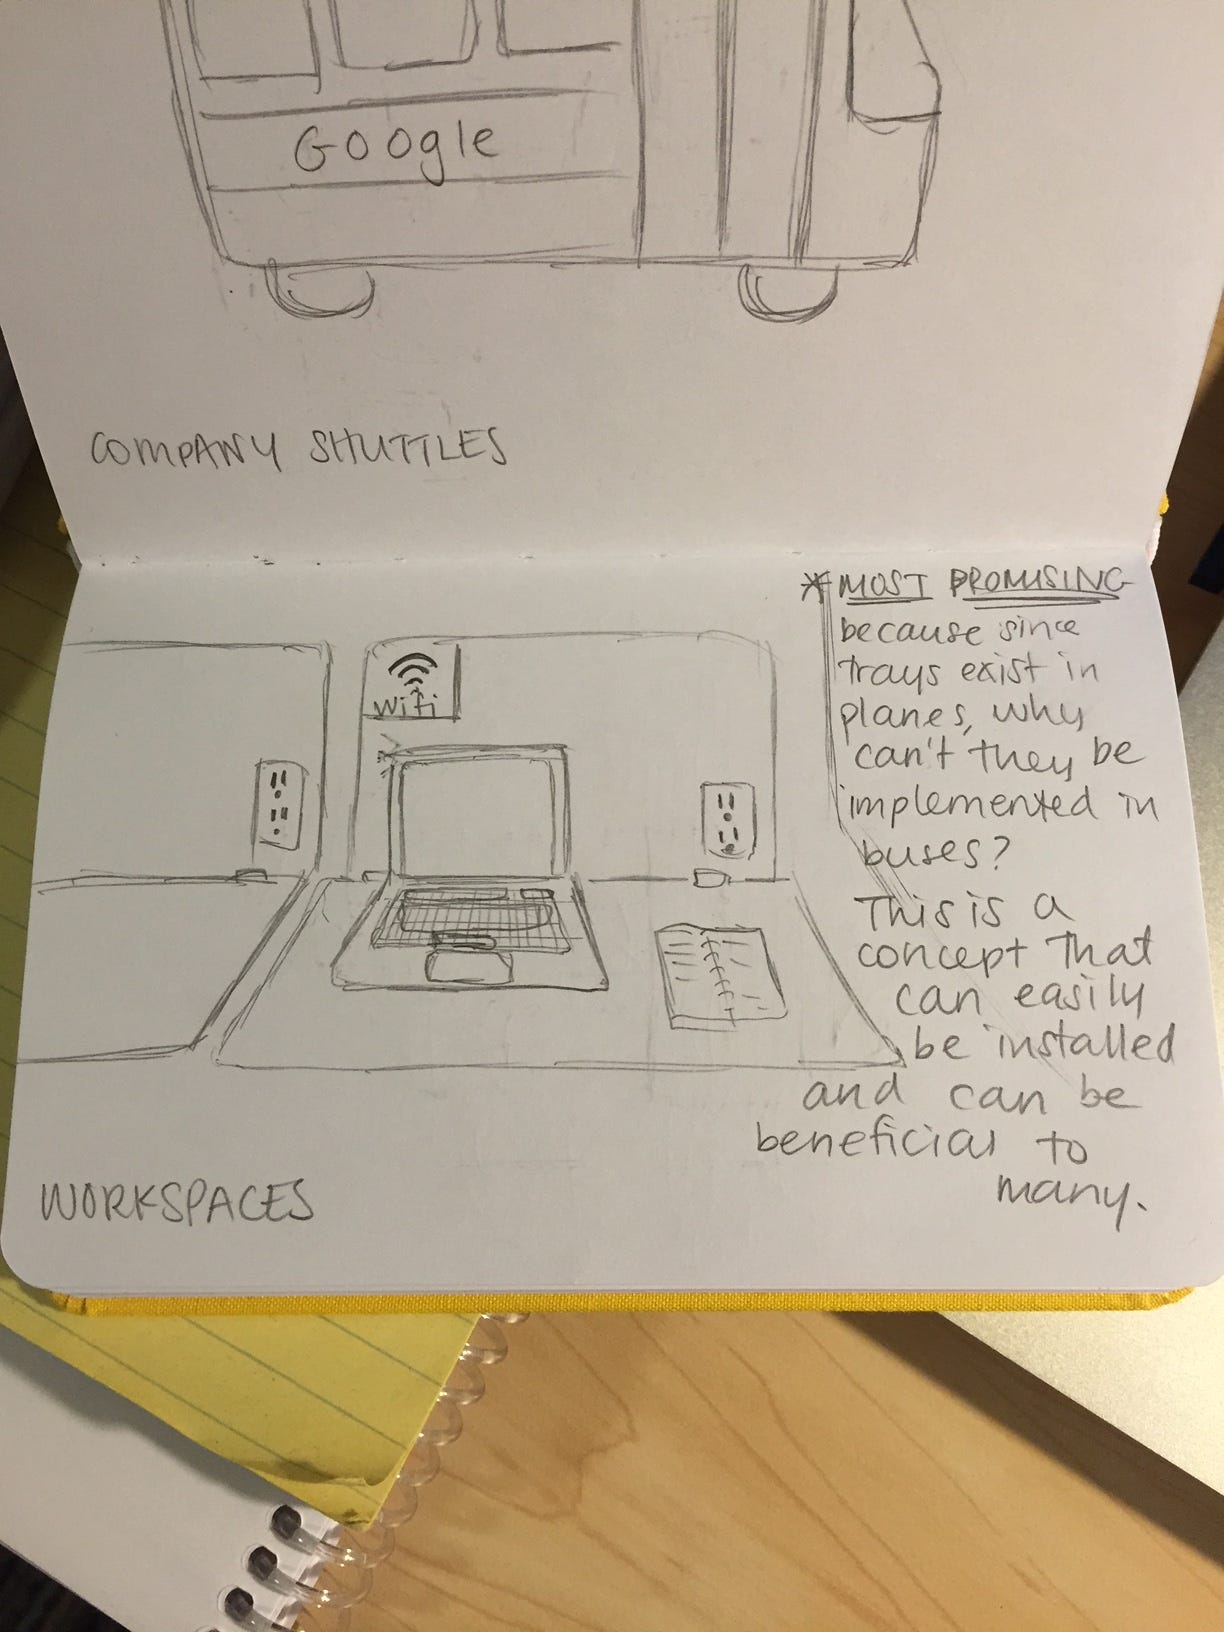 Google
COMPANY SHUTTLES
* MOST PROMISING
because since
trays exist in
planes, why
can't they be
implemented in
buses?
This is a
concept that
can easily
be installed
and can be
beneficial to
many.
wifi
WORKSPACES